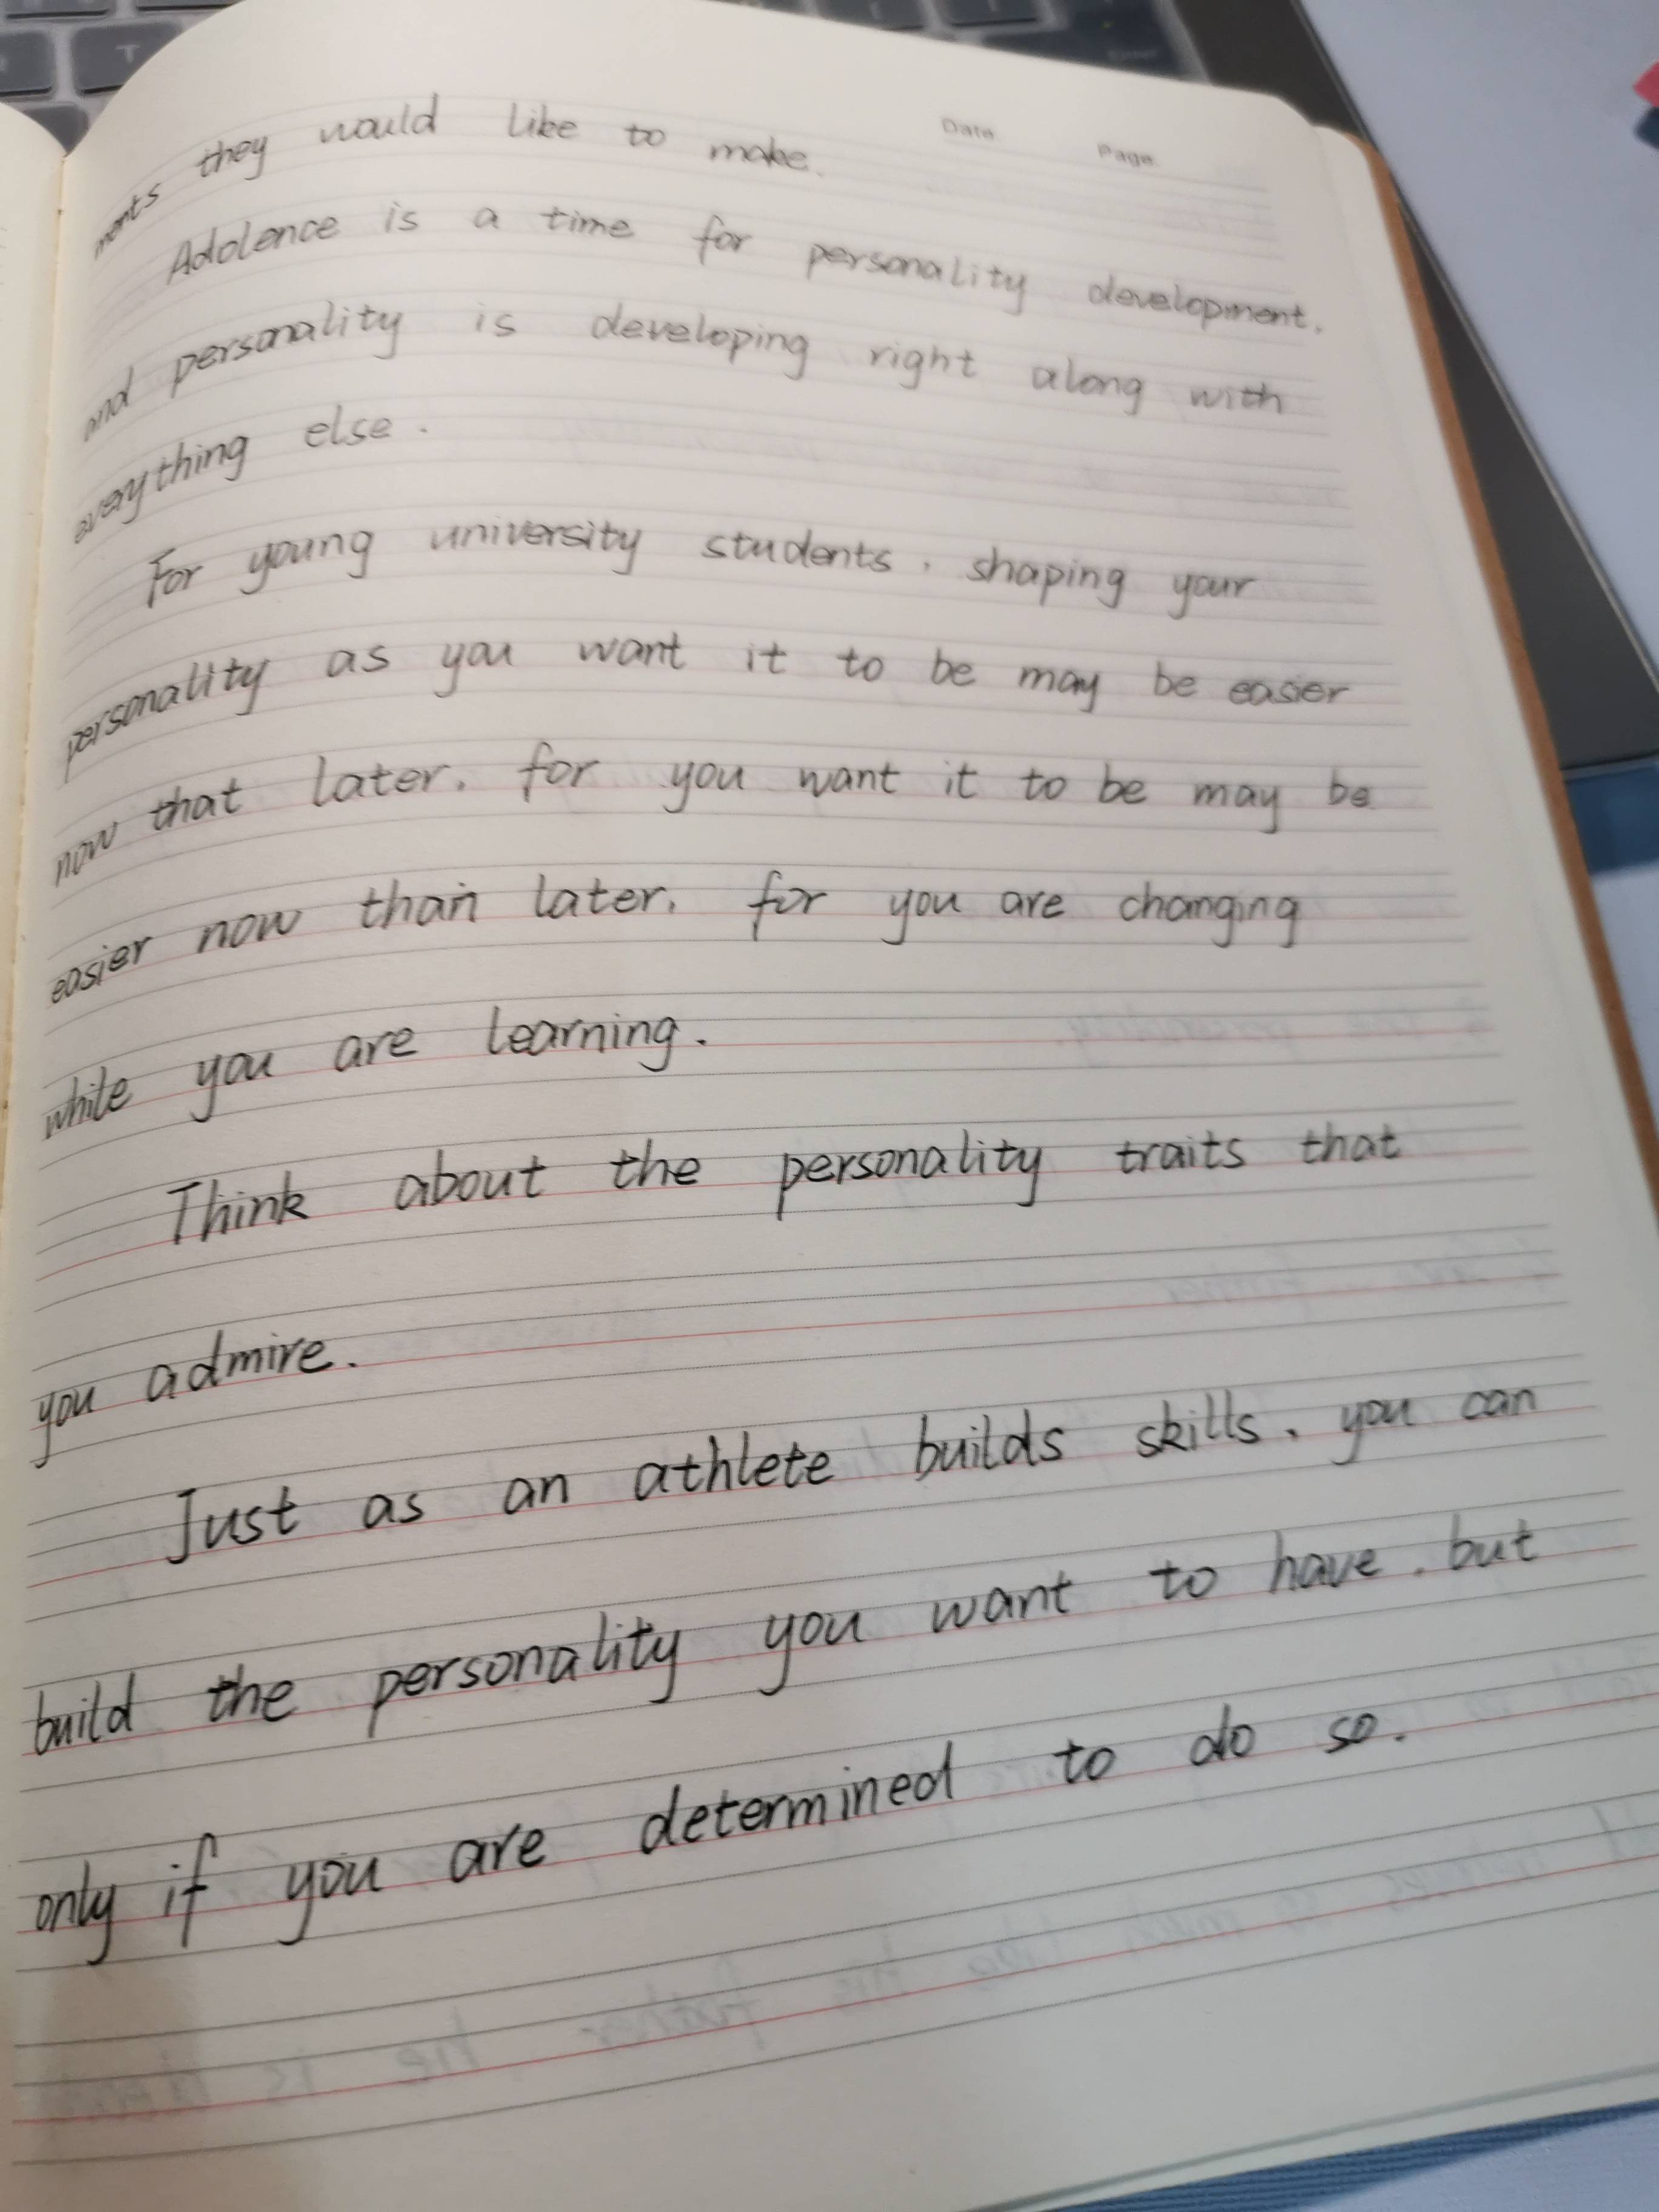 Date Page
ments they would like to make.
Adolence is a time for personality development,
and personality is developing right along with
everything else.
For young university students, shaping your
personality as you want it to be may be easier
now that later, for you want it to be may be
easier now than later, for you are changing
while you are learning.
Think about the personality traits that
you admire.
Just as an athlete builds skills, you can
build the personality you want to have, but
only if you are determined to do so.